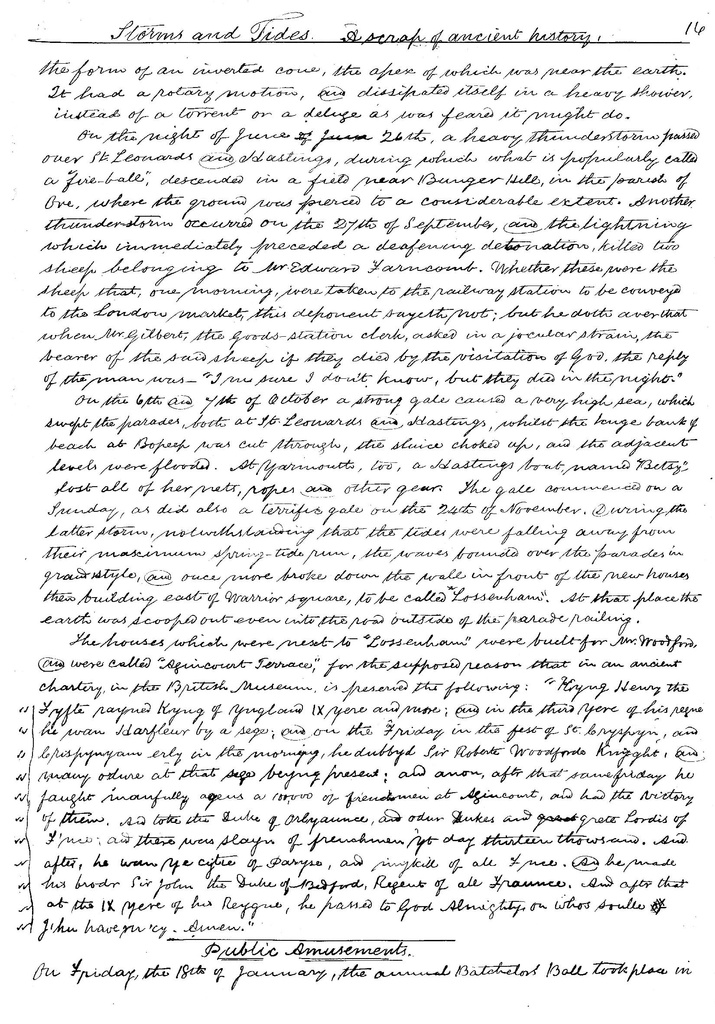 Storms and Tides. A scrap of ancient history. 16
the form of an inverted cone, the apex of which was near the earth.
It had a rotary motion, and dissipated itself in a heavy shower,
instead of a torrent or a deluge as was feared it might do.
On the night of June 26th, a heavy thunderstorm passed
over St Leonards and Hastings, during which what is popularly called
a "fire-ball", descended in a field near Bunger Hill, in the parish of
Ore, where the ground was pierced to a considerable extent. Another
thunder storm occurred on the 27th of September, and the lightning
which immediately preceded a deafening detonation, killed two
sheep belonging to Mr Edward Farncomb. Whether these were the
sheep that, one morning, were taken to the railway station to be conveyed
to the London market, this deponent sayeth not; but he doth aver that
when Mr. Gilbert, the Goods-station clerk, asked in a jocular strain, the
bearer of the said sheep if they died by the visitation of God, the reply
of the man was - "I'm sure I don't know, but they died in the night."
On the 6th and 7th of October a strong gale caused a very high sea, which
swept the parades, both at St. Leonards and Hastings, whilst the huge bank of
beach at Bopeep was cut through, the sluice choked up, and the adjacent
levels were flooded. At Yarmouth, too, a Hastings boat, named "Betsy"
lost all of her nets, ropes and other gear. The gale commenced on a
Sunday, as did also a terrific gale on the 24th of November. During the
latter storm, notwithstanding that the tides were falling away from
their maximum spring-tide run, the waves bounded over the parades in
grand style, and once more broke down the wall in front of the new houses
then building east of Warrior square, to be called "Lossenham". At that place the
earth was scooped out even into the road outside of the parade railing.
The houses which were next to "Lossenham" were built for Mr. Woodford,
and were called "Agincourt Terrace," for the supposed reason that in an ancient
chartery, in the British Museum, is preserved the following: "Kyng Henry the
Fyfte rayned Kyng of Yngland IX yere and more; and in the third yere of his regne
he wan Harfleur by a sege; and on the Friday in the fest of St. Cryspyn, and
Crispynyam erly in the morning, he dubbyd Sir Roberte Woodforde Knigght, and
many odure at that sege beyng present; and anon, after that same friday he
faught manfully agens a 100000 of frenchmen at Agincourt, and had the victory
of them. And toke the Duke of Orlyaunce, and odur Dukes and grete Lordis of
F'nce; and there was slayn of frenchmen yt day thirteen thowsand. And
after, he wan ye cytie of Paryse, and all F'nce. And he made
his brodr Sir John the Duke of Bedford, Regent of all Fraunce. And after that
at the IX yere of his Reygne, he passed to God Almighty on whos soulle
J'hu have m'cy. Amen."
Public Amusements.
On Friday, the 18th of January, the annual Batchelors' Ball took place in